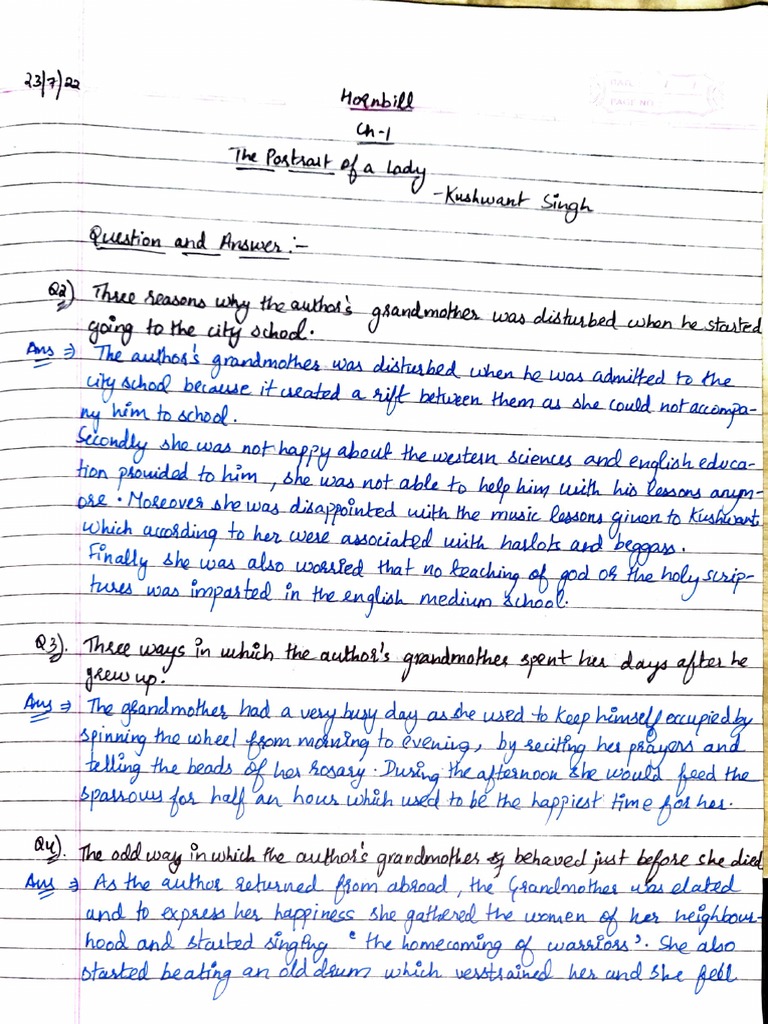 23/7/22
Hornbill
Ch-1
The Portrait of a Lady
-Kushwant Singh
PAGE NO
Question and Answer :-
Q2) Three reasons why the author's grandmother was disturbed when he started
going to the city school.
Ans ⇒ The author's grandmother was disturbed when he was admitted to the
city school because it created a rift between them as she could not accompa-
ny him to school.
Secondly she was not happy about the western sciences and english educa-
tion provided to him, she was not able to help him with his lessons anym-
ore. Moreover she was disappointed with the music lessons given to Kushwant
which according to her were associated with harlots and beggars.
Finally she was also worried that no teaching of god or the holy scrip-
tures was imparted in the english medium school.
Q3). Three ways in which the author's grandmother spent her days after he
grew up.
Ans ⇒ The grandmother had a very busy day as she used to keep himself occupied by
spinning the wheel from morning to evening, by reciting her prayers and
telling the beads of her rosary. During the afternoon she would feed the
sparrows for half an hour which used to be the happiest time for her.
Q4). The odd way in which the author's grandmother behaved just before she died
Ans ⇒ As the author returned from abroad, the Grandmother was elated
and to express her happiness she gathered the women of her neighbour-
hood and started singing "the homecoming of warriors'. She also
started beating an old drum which verstrained her and she fell